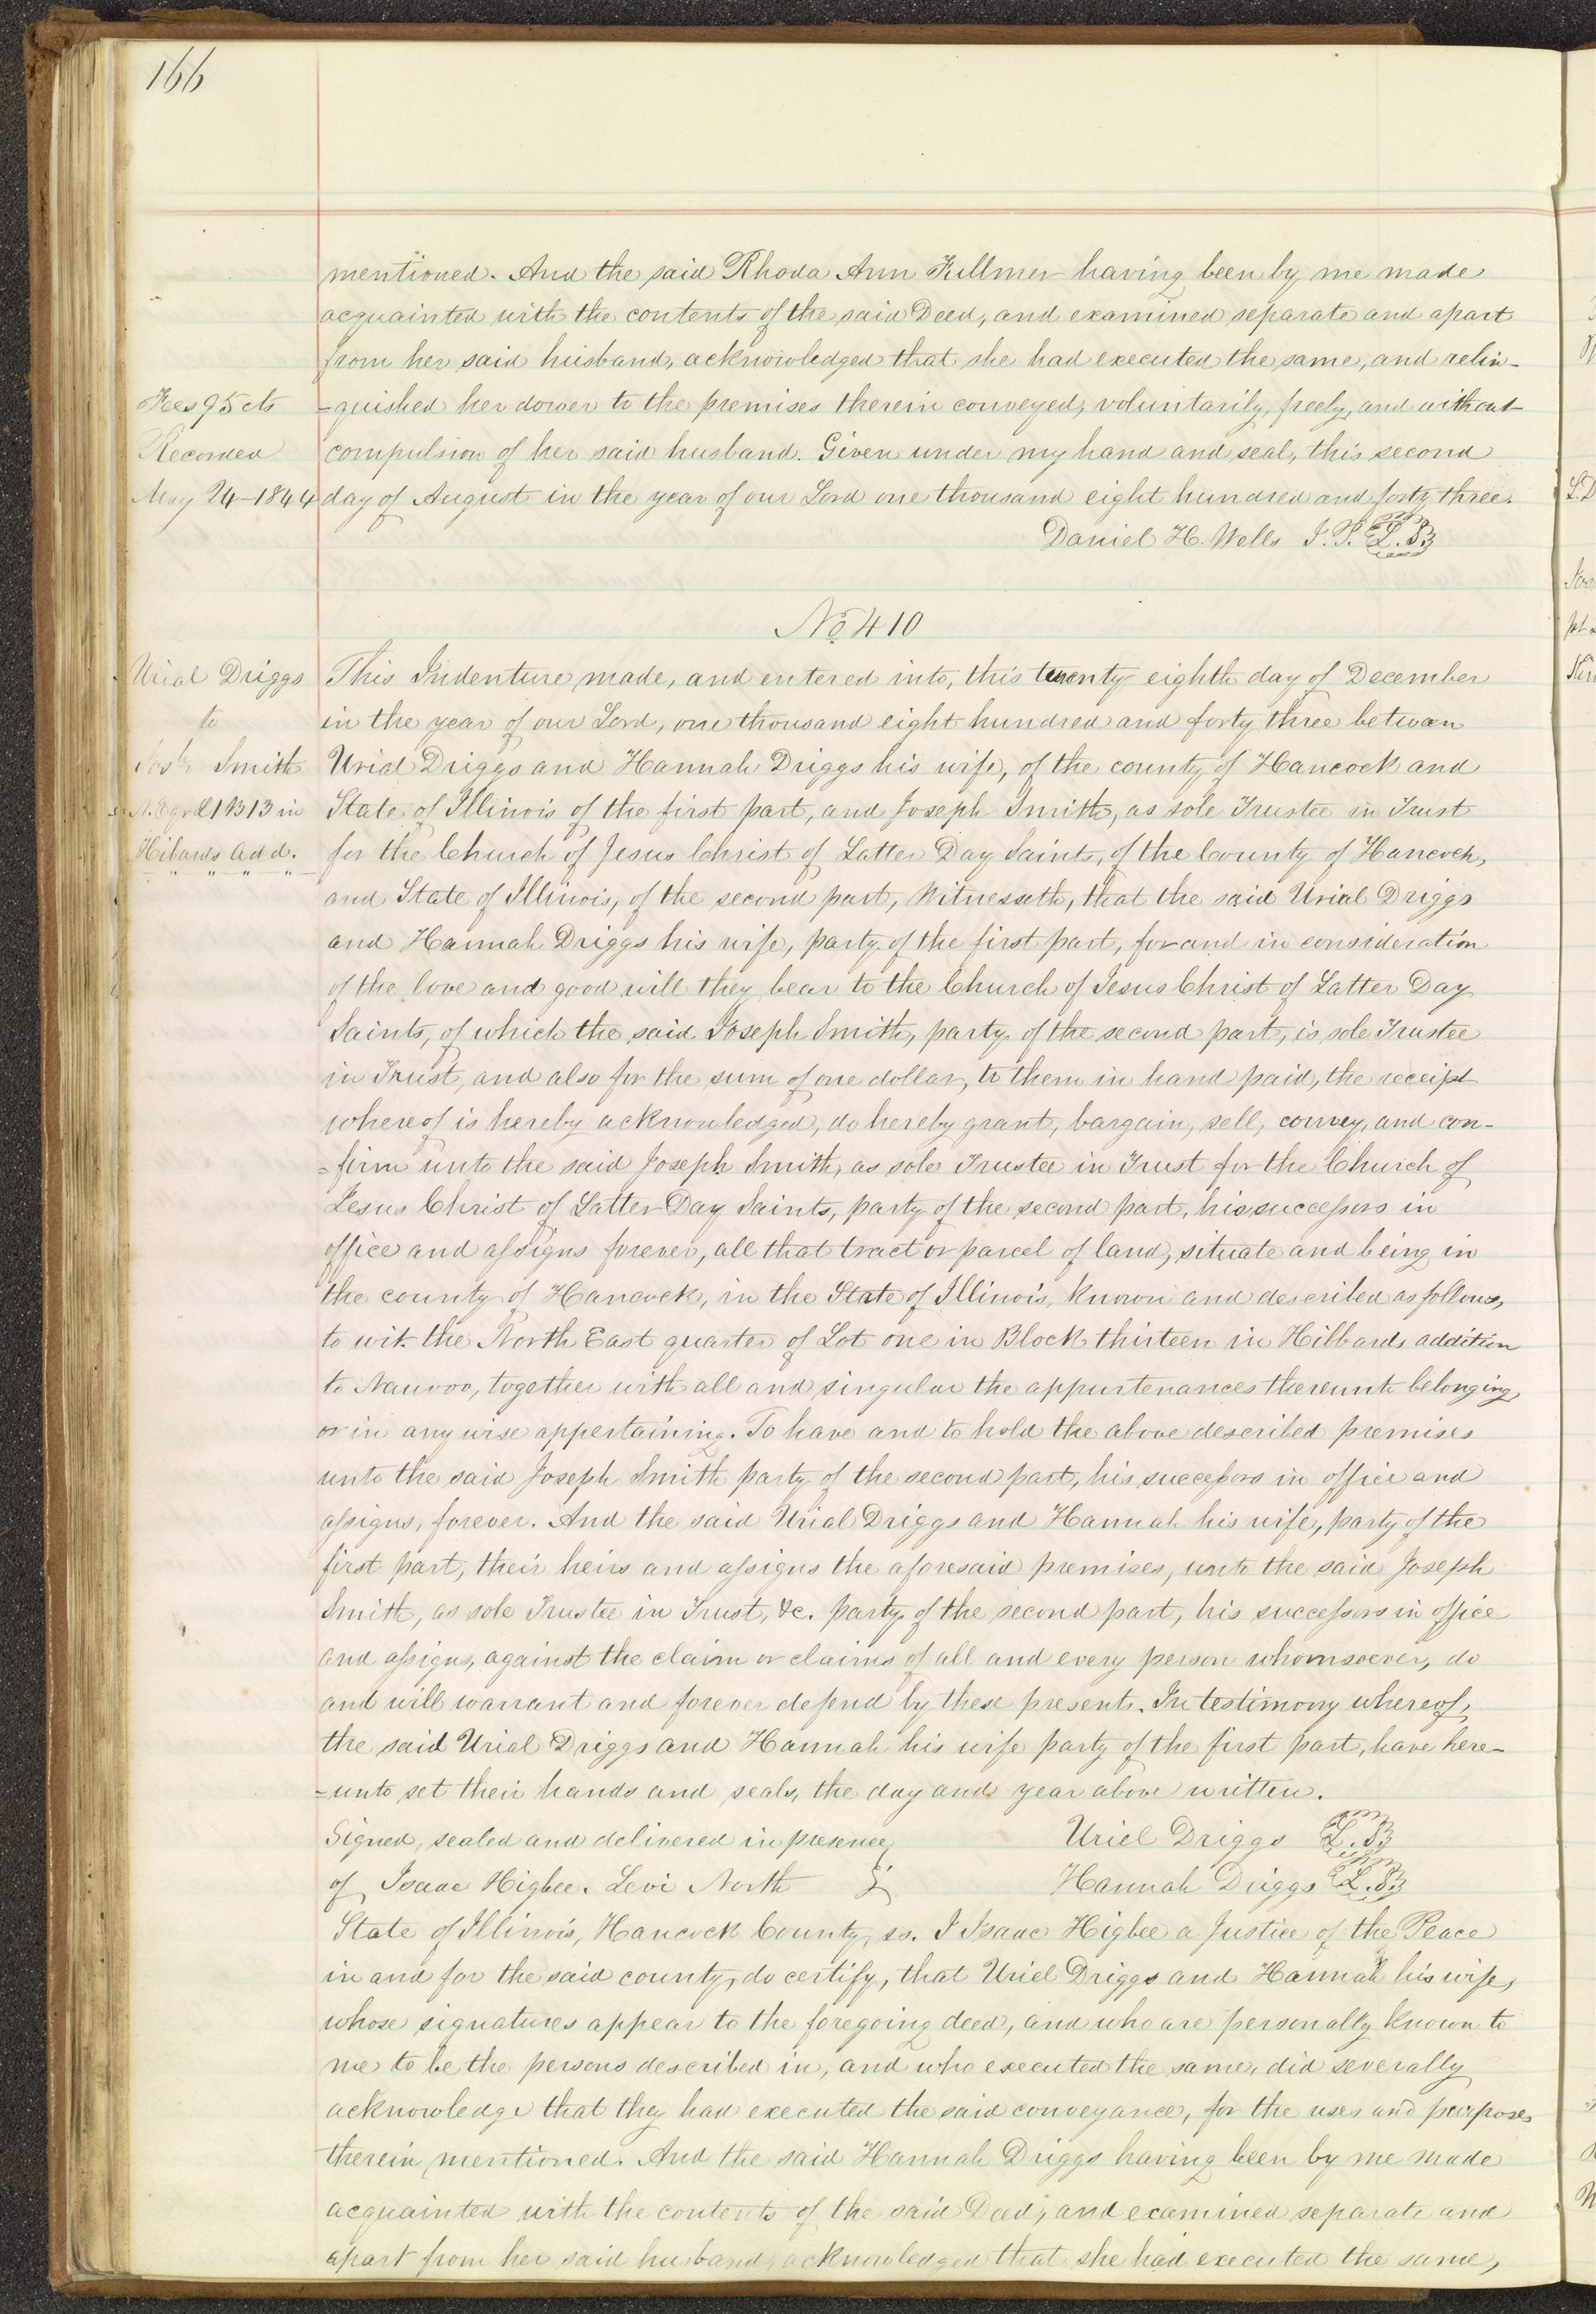 166
mentioned. And the said Rhoda Ann Fullmer having been by me made
acquainted with the contents of the said Deed, and examined separate and apart
from her said husband, acknowledged that she had executed the same, and relin-
Fees 95 cts
=quished her dower to the premises therein conveyed, voluntarily, freely, and without
Recorded
compulsion of her said husband. Given under my hand and seal, this second
May 24-1844
day of August in the year of our Lord one thousand eight hundred and forty three.
Daniel H. Wells J. P. L.S
No 410
Urial Driggs
to
Josh Smith
N.E qr L 1 B 13 in
Hibards Add.
This Indenture made, and entered into, this twenty eighth day of December
in the year of our Lord, one thousand eight hundred and forty three between
Urial Driggs and Hannah Driggs his wife, of the county of Hancock and
State of Illinois of the first part, and Joseph Smith, as sole Trustee in Trust
for the Church of Jesus Christ of Latter Day Saints, of the County of Hancock,
and State of Illinois, of the second part, Witnesseth, that the said Urial Driggs
and Hannah Driggs his wife, party of the first part, for and in consideration
of the love and good will they bear to the Church of Jesus Christ of Latter Day
Saints, of which the said Joseph Smith, party of the second part, is sole Trustee
in Trust, and also for the sum of one dollar, to them in hand paid, the receipt
whereof is hereby acknowledged, do hereby grant, bargain, sell, convey, and con-
=firm unto the said Joseph Smith, as sole Trustee in Trust for the Church of
Jesus Christ of Latter Day Saints, party of the second part, his successors in
office and assigns forever, all that tract or parcel of land, situate and being in
the county of Hancock, in the State of Illinois, known and described as follows,
to wit. the North East quarter of Lot one in Block thirteen in Hibbards addition
to Nauvoo, together with all and singular the appurtenances thereunto belonging
or in any wise appertaining. To have and to hold the above described premises
unto the said Joseph Smith party of the second part, his successors in office and
assigns, forever. And the said Urial Driggs and Hannah his wife, party of the
first part, their heirs and assigns the aforesaid premises, unto the said Joseph
Smith, as sole Trustee in Trust, &c. party of the second part, his successors in office
and assigns, against the claim or claims of all and every person whomsoever, do
and will warrant and forever defend by these presents. In testimony whereof,
the said Urial Driggs and Hannah his wife party of the first part, have here-
=unto set their hands and seals, the day and year above written.
Signed, sealed and delivered in presence
Uriel Driggs L.S
of Isaac Higbee. Levi North
Hannah Driggs L.S
State of Illinois, Hancock County, ss. I Isaac Higbee a Justice of the Peace
in and for the said county, do certify, that Uriel Driggs and Hannah his wife,
whose signatures appear to the foregoing deed, and who are personally known to
me to be the persons described in, and who executed the same, did severally
acknowledge that they had executed the said conveyance, for the uses and purposes
therein mentioned. And the said Hannah Driggs having been by me made
acquainted with the contents of the said Deed, and examined separate and
apart from her said husband, acknowledged that she had executed the same,